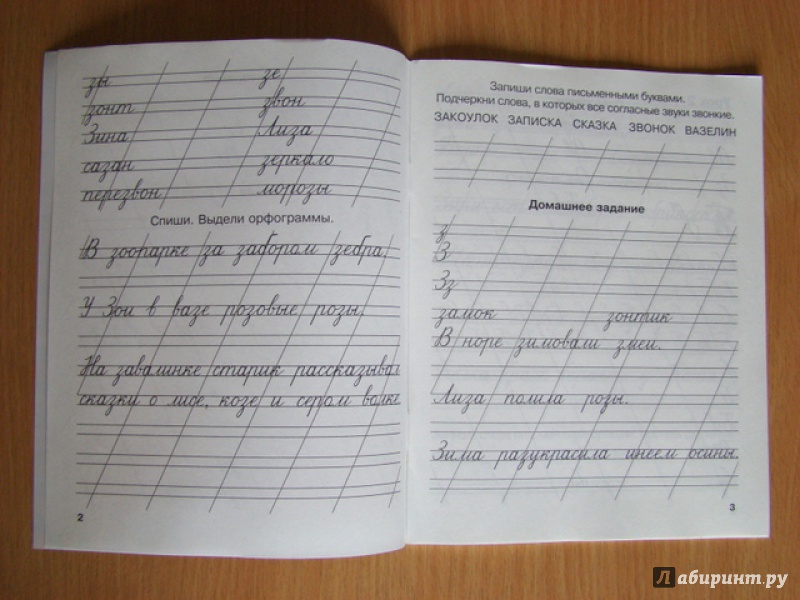 зы зе
зонт звон
Зина Лиза
сазан зеркало
перезвон морозы
Спиши. Выдели орфограммы.
В зоопарке за забором зебра.
У Зои в вазе розовые розы.
На завалинке старик рассказывал
сказки о лисе, козе и сером волке
2
Запиши слова письменными буквами.
Подчеркни слова, в которых все согласные звуки звонкие.
ЗАКОУЛОК ЗАПИСКА СКАЗКА ЗВОНОК ВАЗЕЛИН
Домашнее задание
з
З
Зз
замок зонтик
В норе зимовали змеи.
Лиза полила розы.
Зима разукрасила инеем осины.
3
Лабиринт.ру